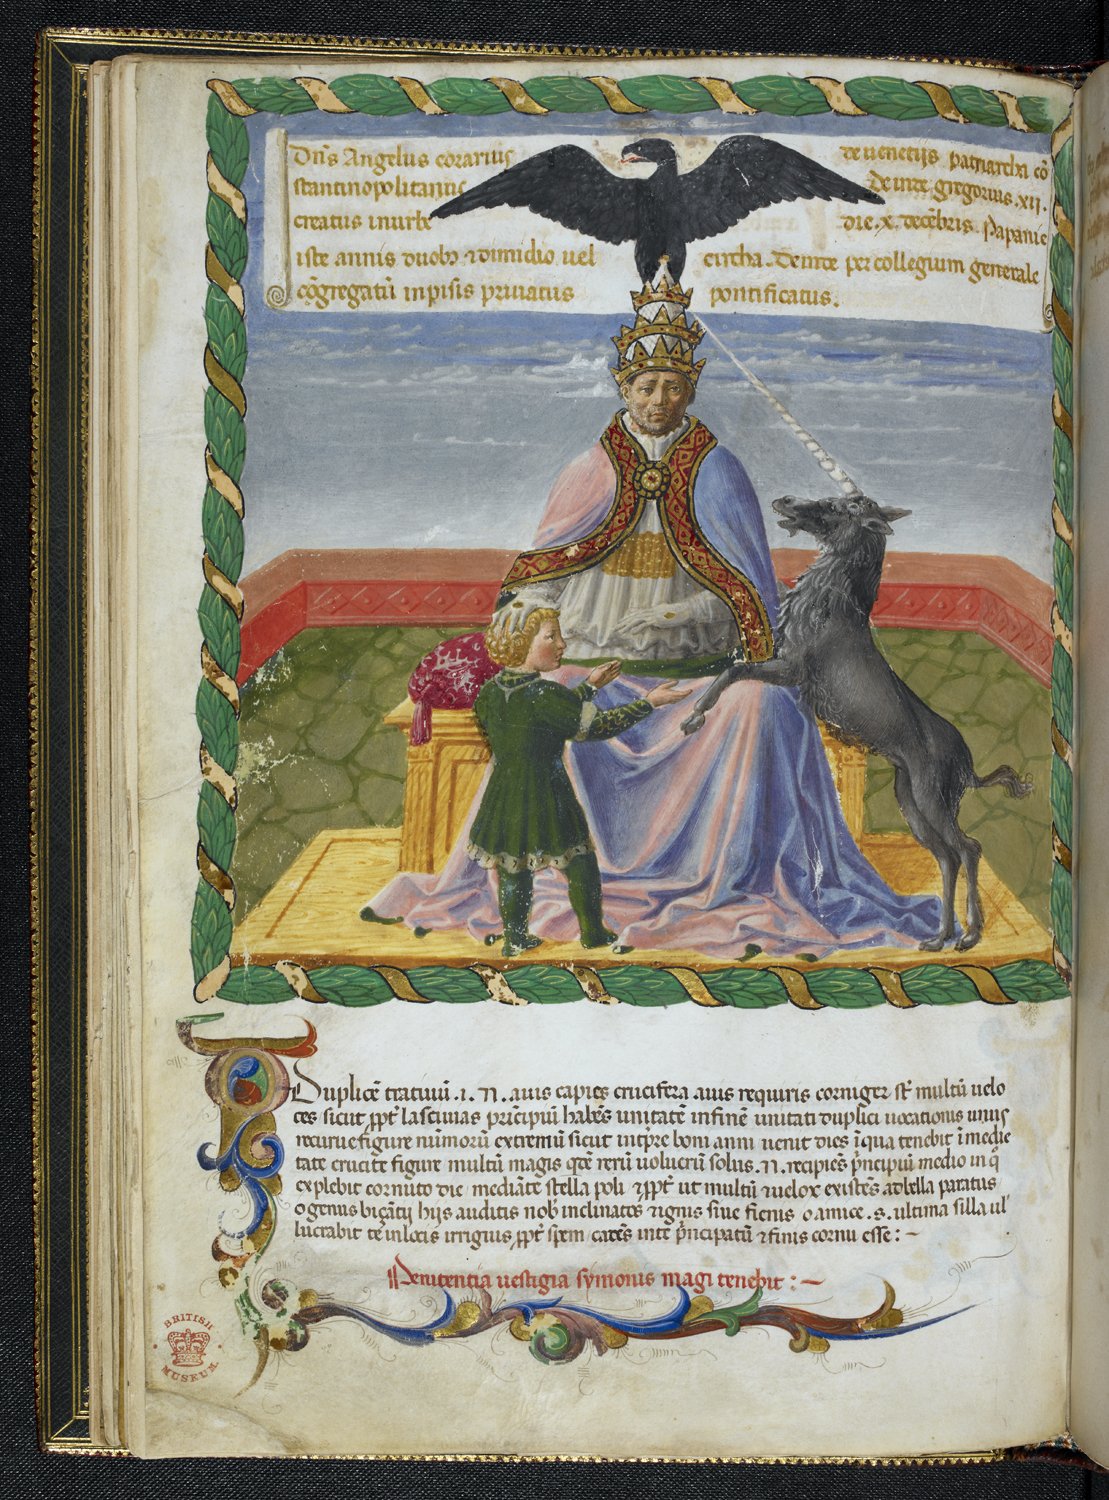 Dn̄s Angelus corarius de uenetijs patriarcha cō
stantinopolitanus Deinde gregorius .xij.
creatus in urbe die .x. decēbris. Papauit
iste annis duobꝫ ⁊ dimidio uel circha. Deinde per collegium generale
cōgregatū in pisis priuatus pontificatus.
Duplicē tratiuū .i. N. auis capies crucifera auis requiris corniger multū uelo
ces sicut lasciuias principiū habēs unitatē in finē unitati duplici uocationis unius
recurue figure numorū extremū sicut boni anni uenit dies ī qua tenebit ī medie
tate crucite figure multū magis rerū uolucrū solus .N. recipies prīcipiū medio in
explebit cornuto die mediāte stella poli ut multū ⁊ uelox existēs ad bella paratus
o genus hijs auditis inclinatos ⁊ ignis siue ficus o amice .s. ultima silla ul'
lucrabit te in locis irriguis spem / cares īnte prīcipatū ⁊ finis cornu esse : –
Penitentia uestigia symonis magi tenebit : –
BRITISH
MUSEUM